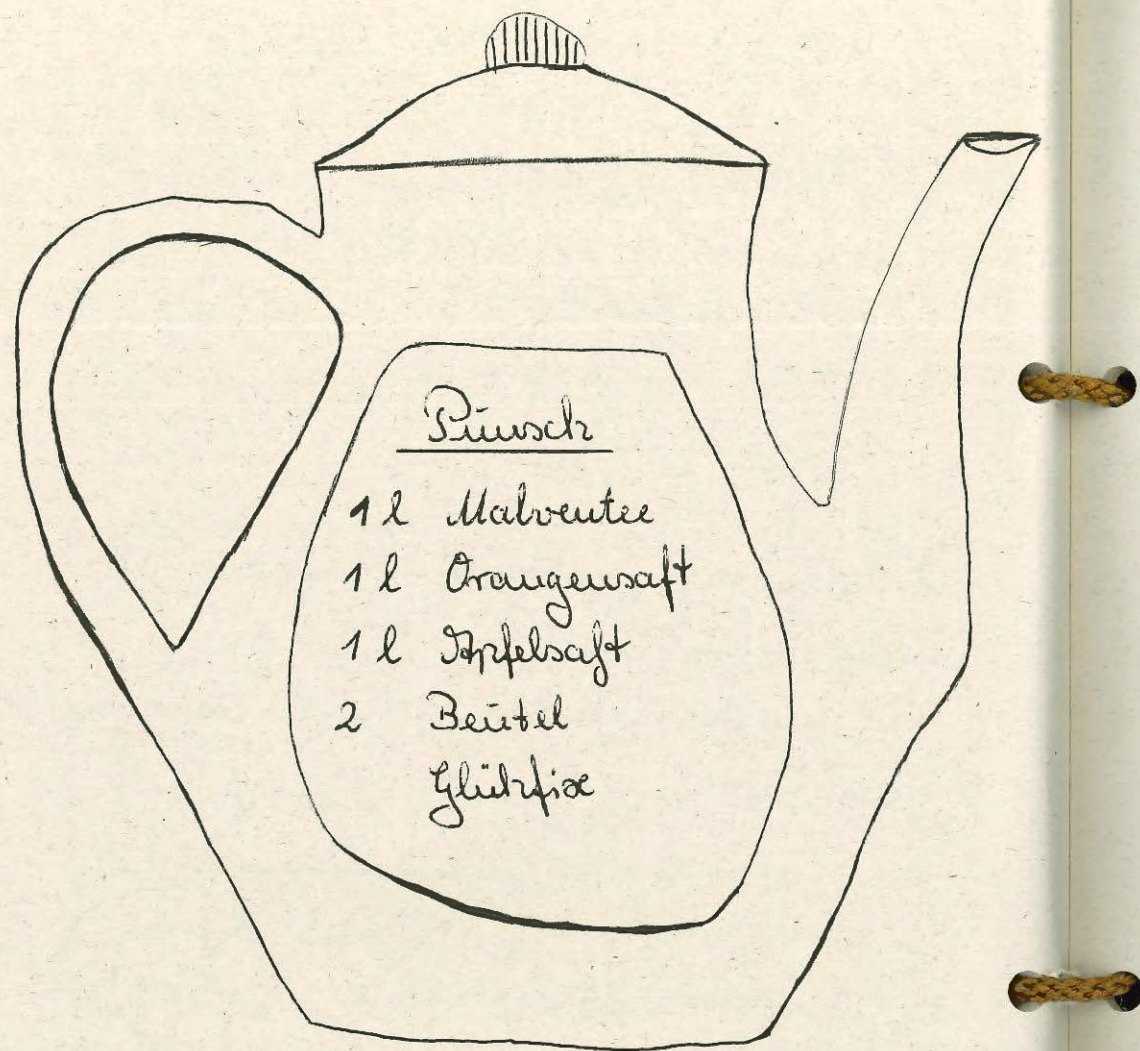 Punsch
1 l Malventee
1 l Orangensaft
1 l Apfelsaft
2 Beutel
Glühfix